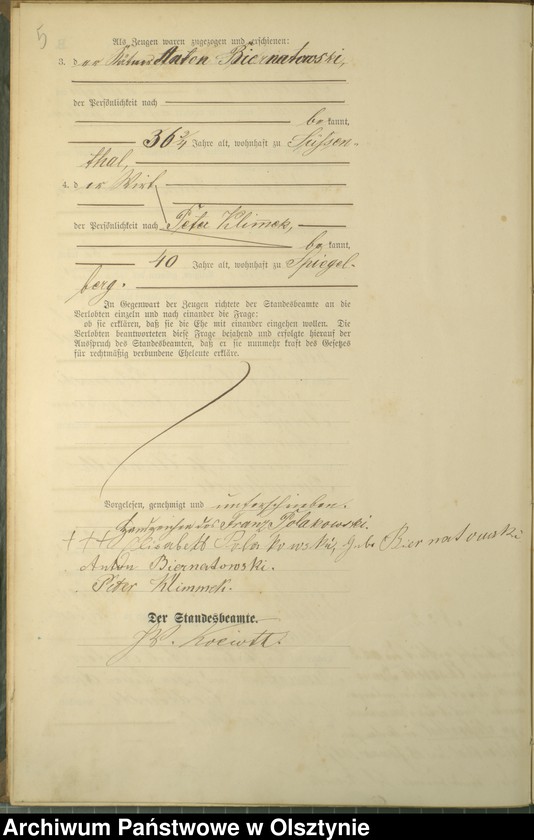 5
Als Zeugen waren zugezogen und erschienen:
3. der Anton Biernatowski,
der Persönlichkeit nach
be kannt,
36 3/4 Jahre alt, wohnhaft zu Süssen-
thal,
4. der Wirt
der Persönlichkeit nach Peter Klimek,
be kannt,
40 Jahre alt, wohnhaft zu Spiegel-
berg.
In Gegenwart der Zeugen richtete der Standesbeamte an die
Verlobten einzeln und nach einander die Frage:
ob sie erklären, daß sie die Ehe mit einander eingehen wollen. Die
Verlobten beantworteten diese Frage bejahend und erfolgte hierauf der
Ausspruch des Standesbeamten, daß er sie nunmehr kraft des Gesetzes
für rechtmäßig verbundene Eheleute erkläre.
Vorgelesen, genehmigt und unterschrieben.
Handzeichen des Franz Polakowski.
+++ Elisabett Polakowski, geb. Biernatowski
Anton Biernatowski.
Peter Klimmek.
Der Standesbeamte.